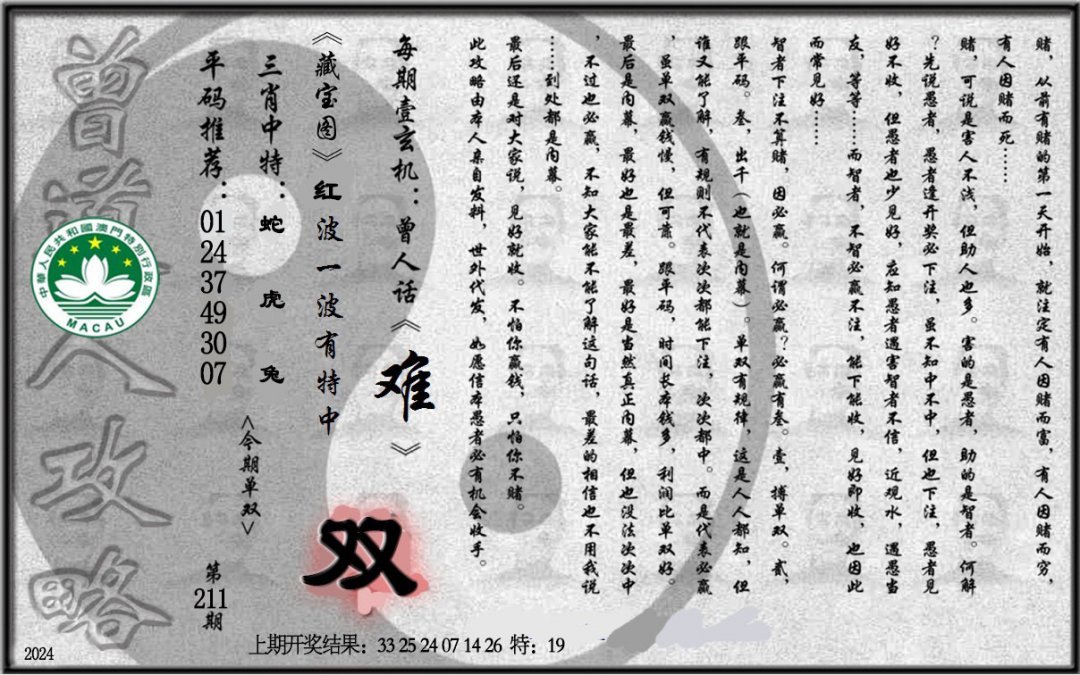 赌，从前有赌的第一天开始，就注定有人因赌而富，有人因赌而穷，
有人因赌而死……
赌，可说是害人不浅，但助人也多。害的是愚者，助的是智者。何解
？先说愚者，愚者逢开奖必下注，虽不知中不中，但也下注，愚者见
好不收，但愚者也少见好，应知愚者遇害智者不信，近观水，遇愚当
友，等等……而智者，不智必赢不注，能下能收，见好即收，也因此
而常见好……
智者下注不算赌，因必赢。何谓必赢？必赢有叁。壹，搏单双。贰，
跟平码。叁，出千（也就是内幕）。单双有规律，这是人人都知，但
谁又能了解，有规则不代表次次都能下注，次次都中。而是代表必赢
，虽单双赢钱慢，但可靠。跟平码，时间长本钱多，利润比单双好。
最后是内幕，最好也是最差，最好是当然真正内幕，但也没法次次中
，不过也必赢，不知大家能不能了解这句话，最差的相信也不用我说
……到处都是内幕。
最后还是对大家说，见好就收。不怕你赢钱，只怕你不赌。
此攻略由本人亲自发料，世外代发，如愿信本愚者必有机会收手。
每期壹玄机：曾人话《难》
《藏宝图》红波一波有特中
双
三肖中特：蛇虎兔
<今期单双>
平码推荐：
01
24
37
49
30
07
第
211
期
曾道人攻略
中華人民共和國澳門特別行政區
MACAU
上期开奖结果：33 25 24 07 14 26 特：19
2024